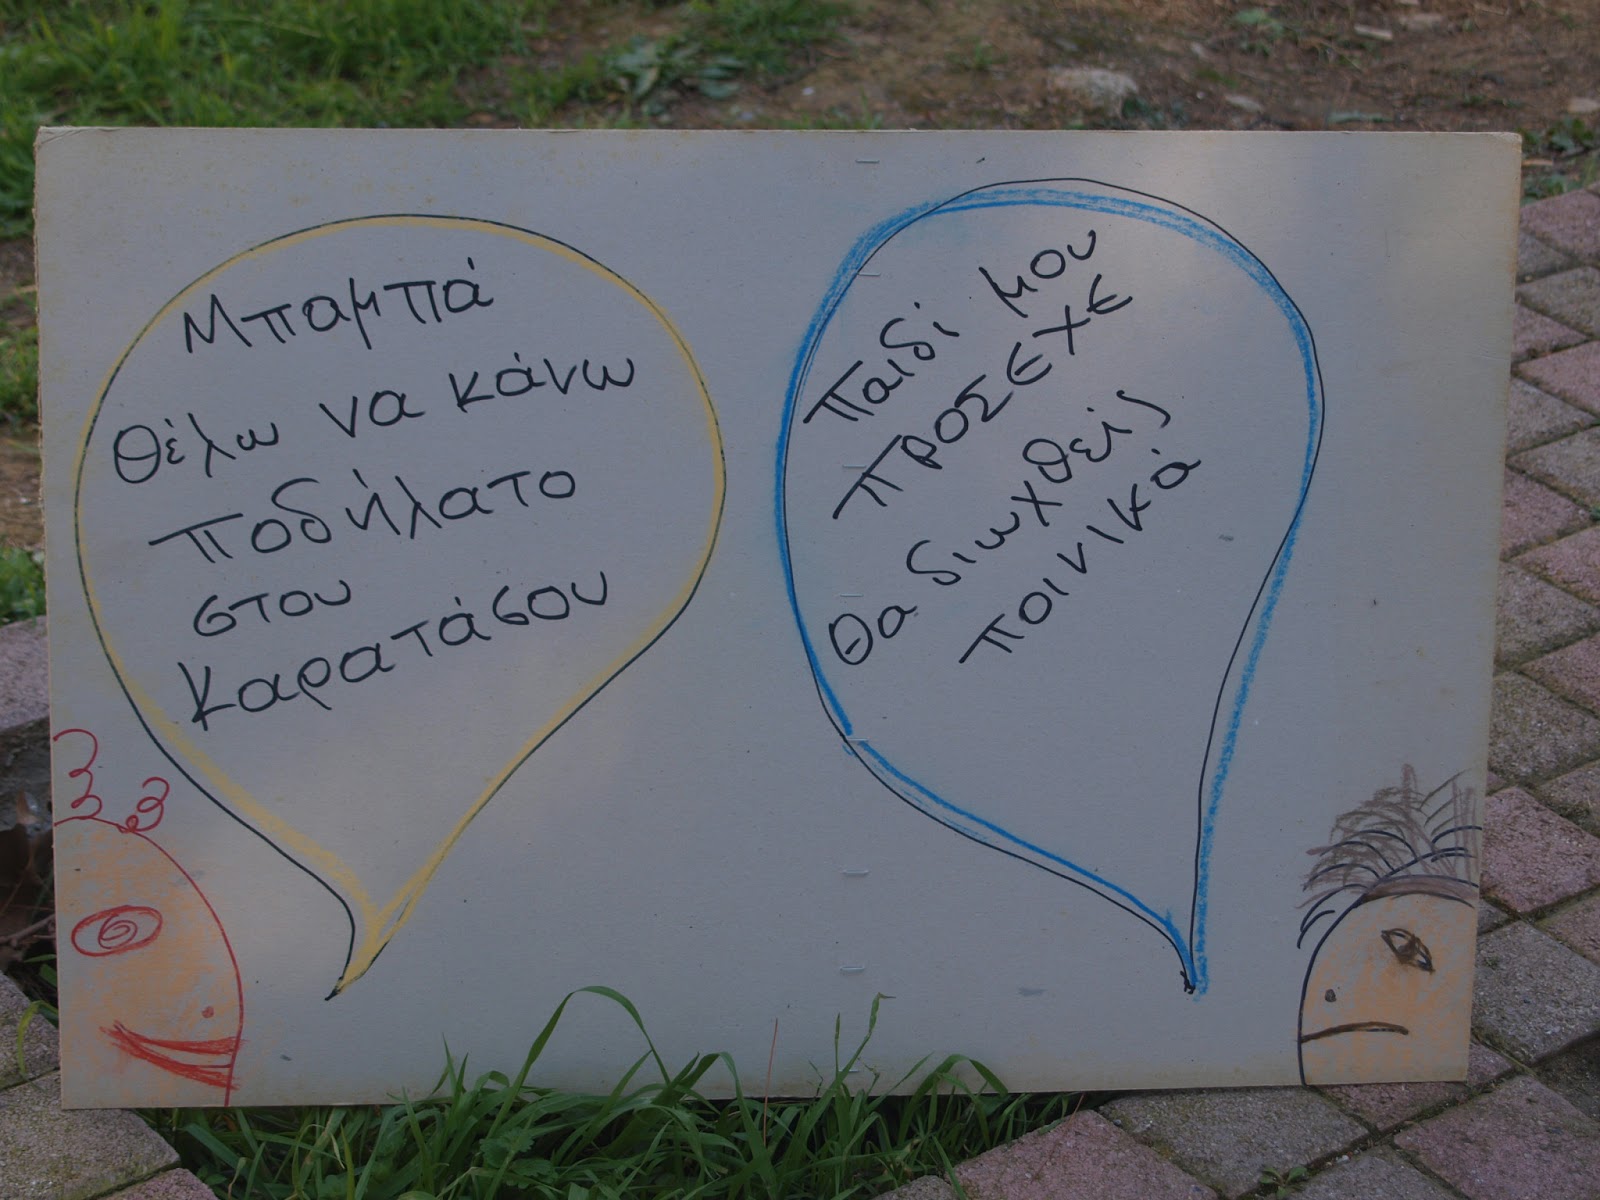 Μπαμπά
θέλω να κάνω
ποδήλατο
στου
Καρατάσου
Παιδί μου
ΠΡΟΣΕΧΕ
θα διωχθείς
ποινικά